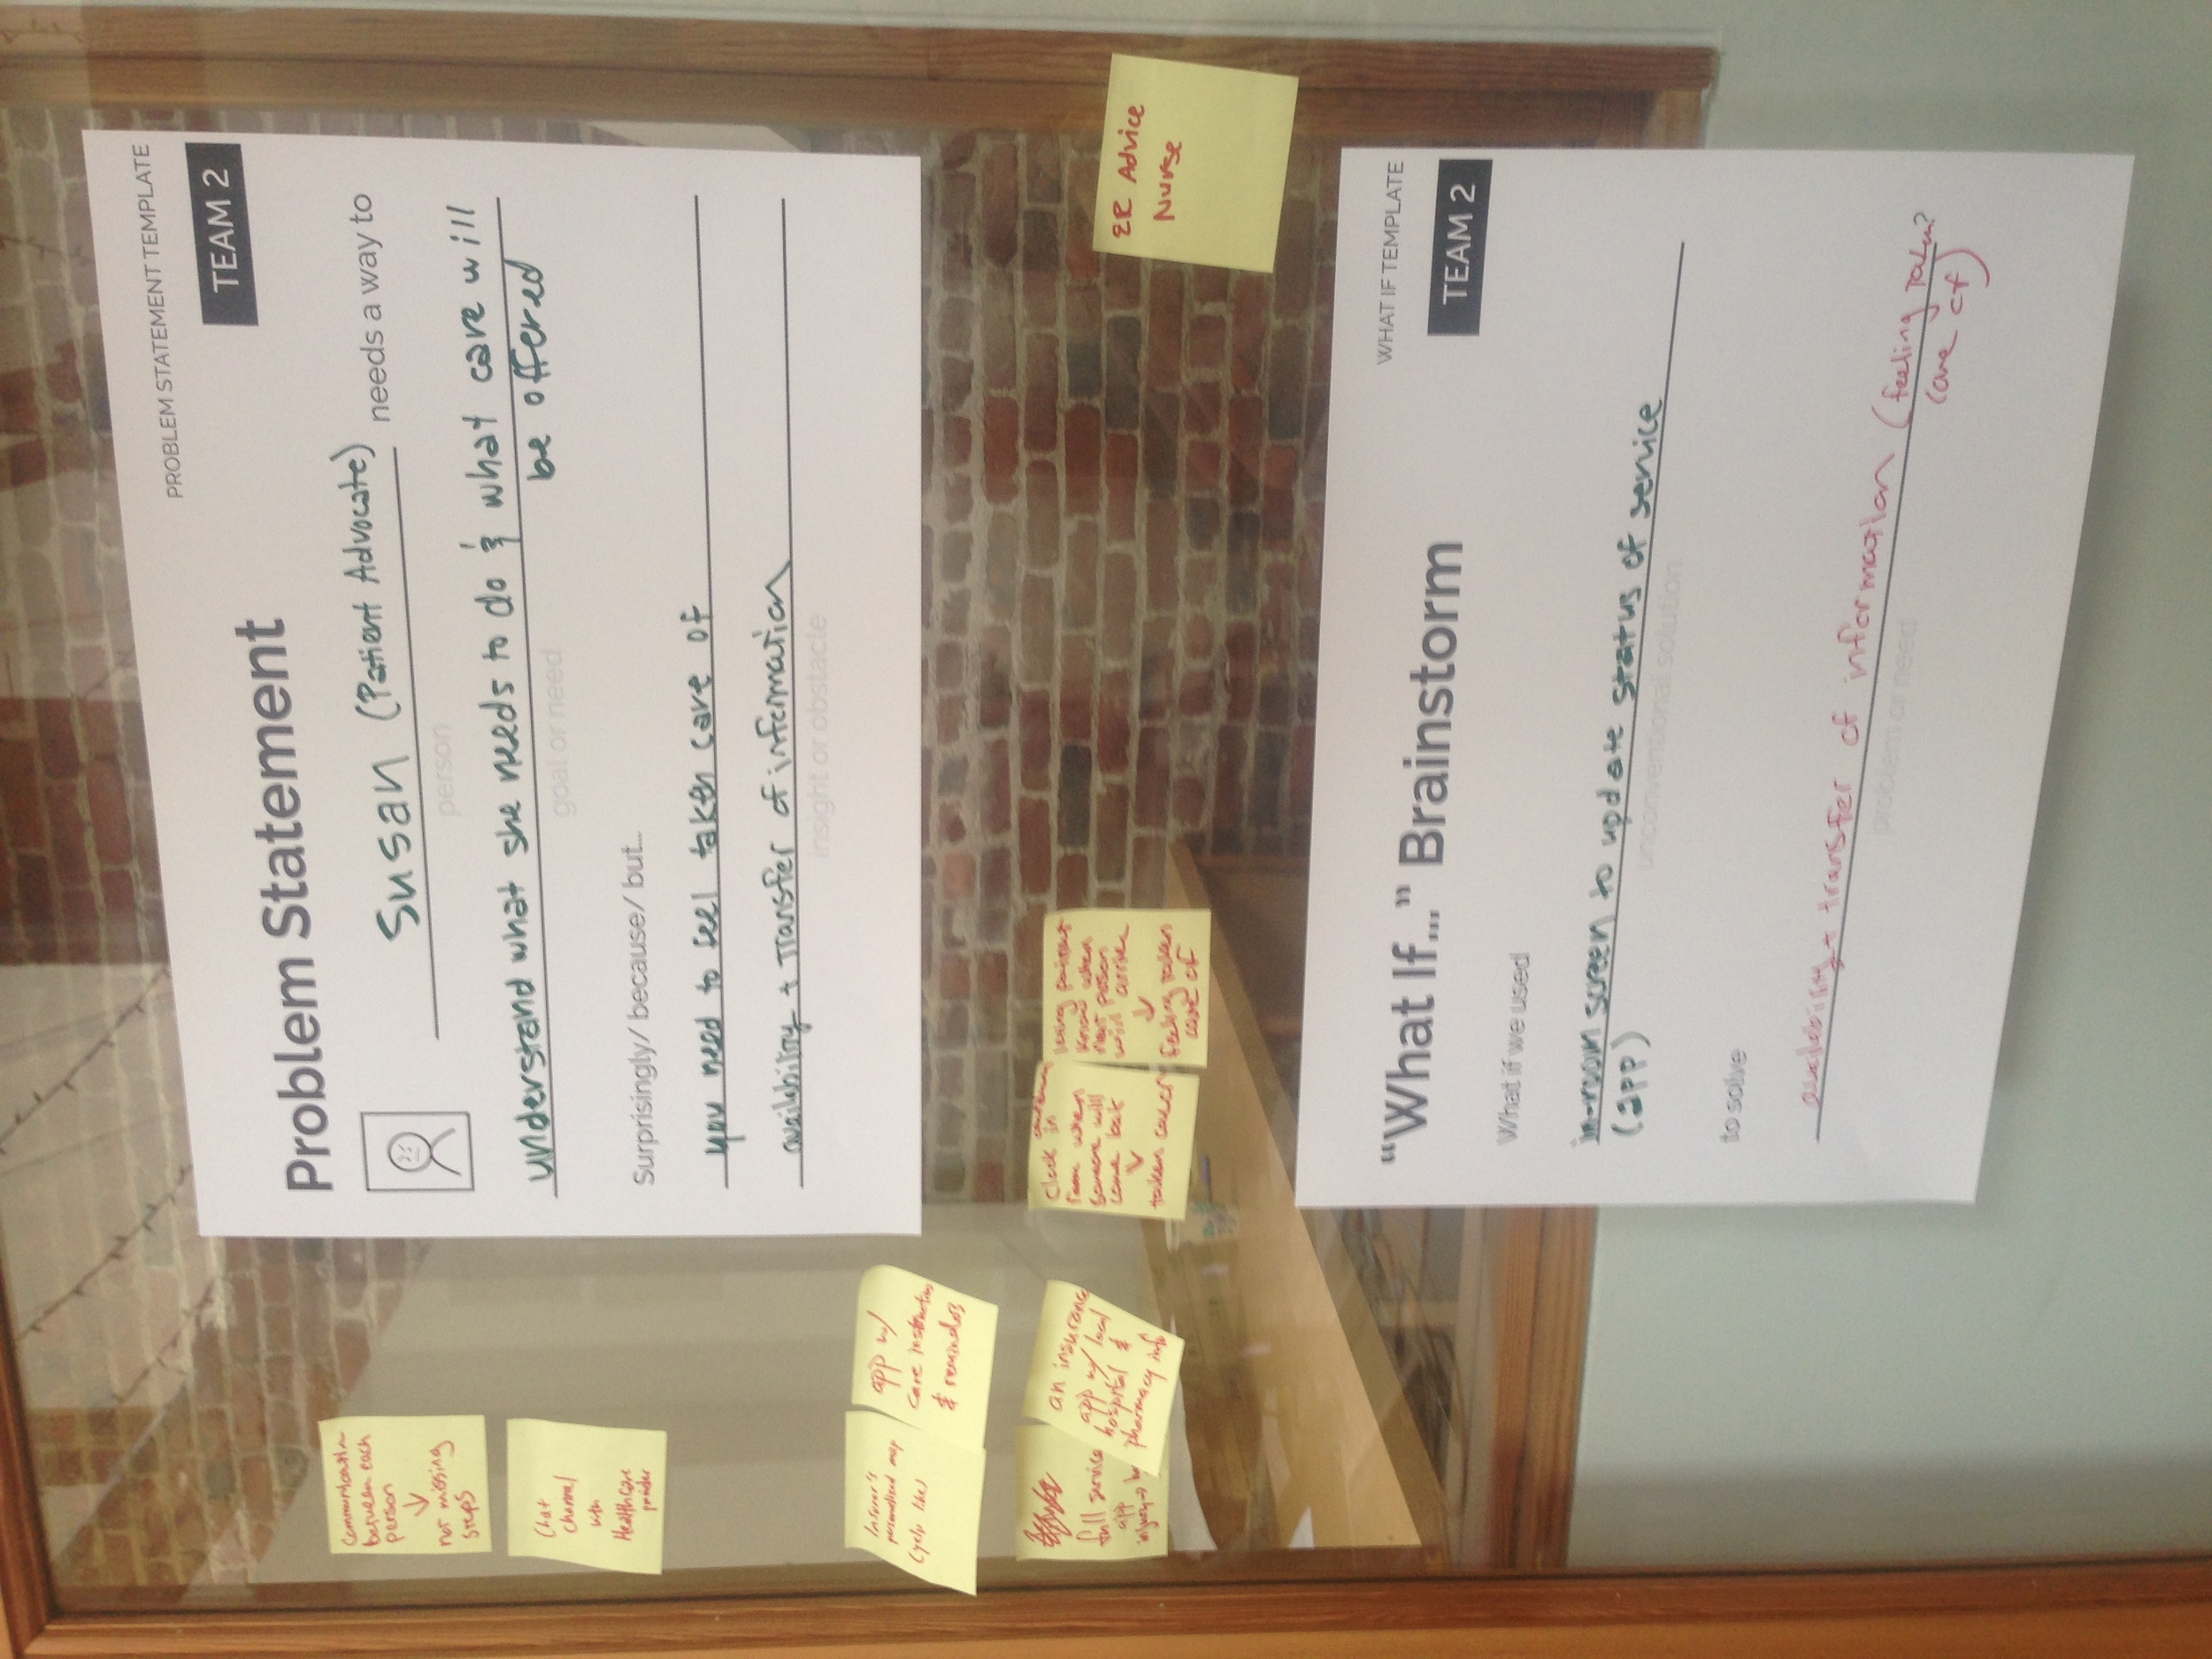 PROBLEM STATEMENT TEMPLATE
Problem Statement
TEAM 2
Susan (Patient Advocate) needs a way to
person
understand what she needs to do & what care will
be offered
goal or need
Surprisingly/ because/ but...
you need to feel taken care of
availability + transfer of information
insight or obstacle
Communication
between each
person
↓
not missing
steps
Chat
channel
with
Healthcare
app w/
care instructions
& reminders
personalized map
(yelp like)
full service
app
injury →
an insurance
app w/ local
hospital &
pharmacy info
Clock in
room when
someone will
come back
↓
taken care of
know when
next person
will arrive
↓
feeling taken
care of
ER Advice
Nurse
WHAT IF TEMPLATE
"What If..." Brainstorm
TEAM 2
What if we used
in-room screen to update status of service
(app)
unconventional solution
to solve
availability + transfer of information (feeling taken?
care of)
problem or need